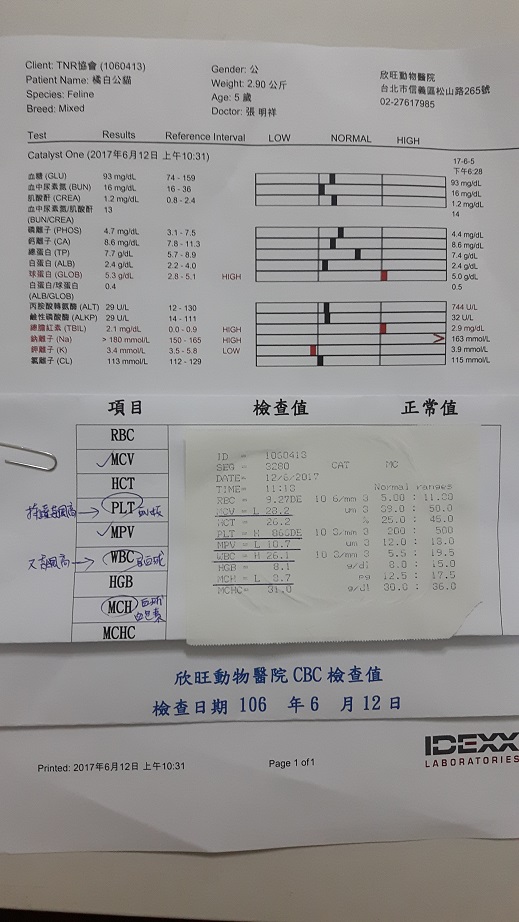 Client: TNR協會 (1060413)
Patient Name: 橘白公貓
Species: Feline
Breed: Mixed
Gender: 公
Weight: 2.90 公斤
Age: 5 歲
Doctor: 張 明祥
欣旺動物醫院
台北市信義區松山路265號
02-27617985
Test Results Reference Interval LOW NORMAL HIGH
Catalyst One (2017年6月12日 上午10:31) 17-6-5
下午6:28
血糖 (GLU) 93 mg/dL 74 - 159 93 mg/dL
血中尿素氮 (BUN) 16 mg/dL 16 - 36 16 mg/dL
肌酸酐 (CREA) 1.2 mg/dL 0.8 - 2.4 1.2 mg/dL
血中尿素氮/肌酸酐 13 14
(BUN/CREA)
磷離子 (PHOS) 4.7 mg/dL 3.1 - 7.5 4.4 mg/dL
鈣離子 (CA) 8.6 mg/dL 7.8 - 11.3 8.6 mg/dL
總蛋白 (TP) 7.7 g/dL 5.7 - 8.9 7.4 g/dL
白蛋白 (ALB) 2.4 g/dL 2.2 - 4.0 2.4 g/dL
球蛋白 (GLOB) 5.3 g/dL 2.8 - 5.1 HIGH 5.0 g/dL
白蛋白/球蛋白 0.4 0.5
(ALB/GLOB)
丙胺酸轉氨酶 (ALT) 29 U/L 12 - 130 744 U/L
鹼性磷酸酶 (ALKP) 29 U/L 14 - 111 32 U/L
總膽紅素 (TBIL) 2.1 mg/dL 0.0 - 0.9 HIGH 2.9 mg/dL
鈉離子 (Na) > 180 mmol/L 150 - 165 HIGH 163 mmol/L
鉀離子 (K) 3.4 mmol/L 3.5 - 5.8 LOW 3.9 mmol/L
氯離子 (CL) 113 mmol/L 112 - 129 115 mmol/L
項目 檢查值 正常值
RBC
MCV
HCT
PLT
MPV
WBC
HGB
MCH
MCHC
ID = 1060413
SEG = 3280 CAT MC
DATE= 12/6/2017
TIME= 11:13 Normal ranges
RBC = 9.27DE 10 6/mm 3 5.00 : 11.00
MCV = L 28.2 um 3 39.0 : 50.0
HCT = 26.2 % 25.0 : 45.0
PLT = H 866DE 10 3/mm 3 200 : 500
MPV = L 10.7 um 3 12.0 : 18.0
WBC = H 26.1 10 3/mm 3 5.5 : 19.5
HGB = 8.1 g/dl 8.0 : 15.0
MCH = L 8.7 pg 12.5 : 17.5
MCHC= 31.0 g/dl 30.0 : 36.0
欣旺動物醫院 CBC 檢查值
檢查日期 106 年 6 月 12 日
IDEXX
LABORATORIES
Printed: 2017年6月12日 上午10:31 Page 1 of1